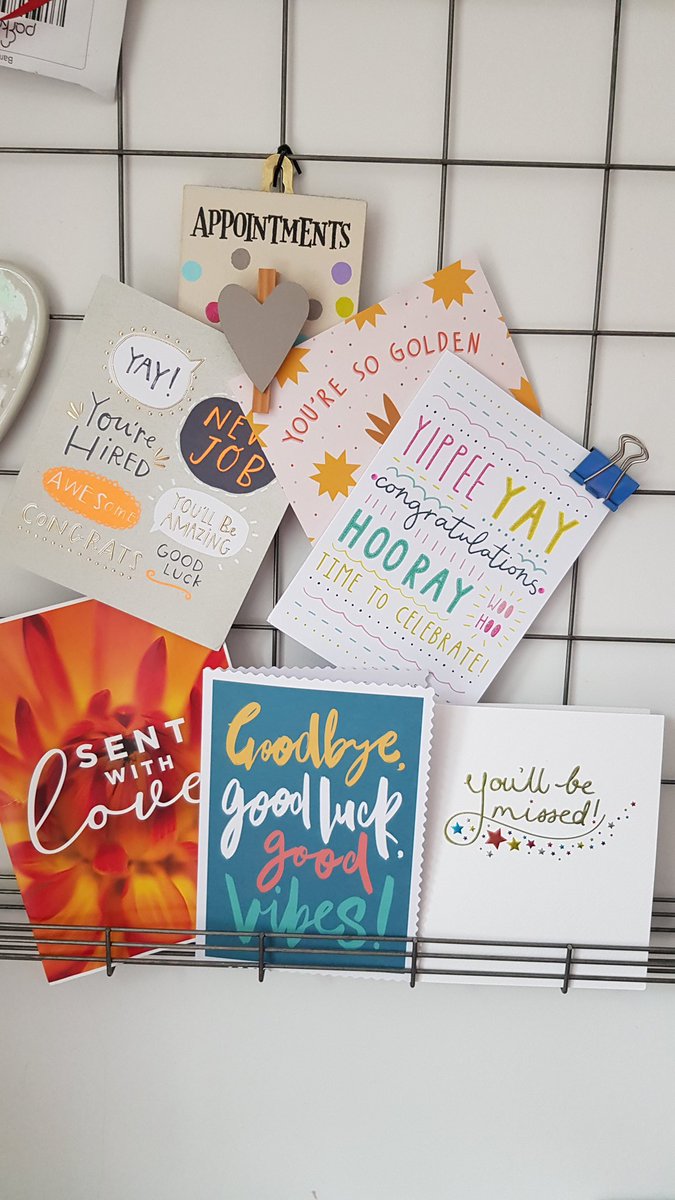 APPOINTMENTS
YAY!
You're
HIRED
NEW
JOB
AWESome
CONGRATS
YOU'LL Be
AMAZING
GOOD
LUCK
YOU'RE SO GOLDEN
YIPPEE YAY
congratulations
HOORAY
WOO
HOO
TIME TO CELEBRATE!
SENT
WITH
love
Goodbye,
good luck,
good
vibes!
You'll be
missed!